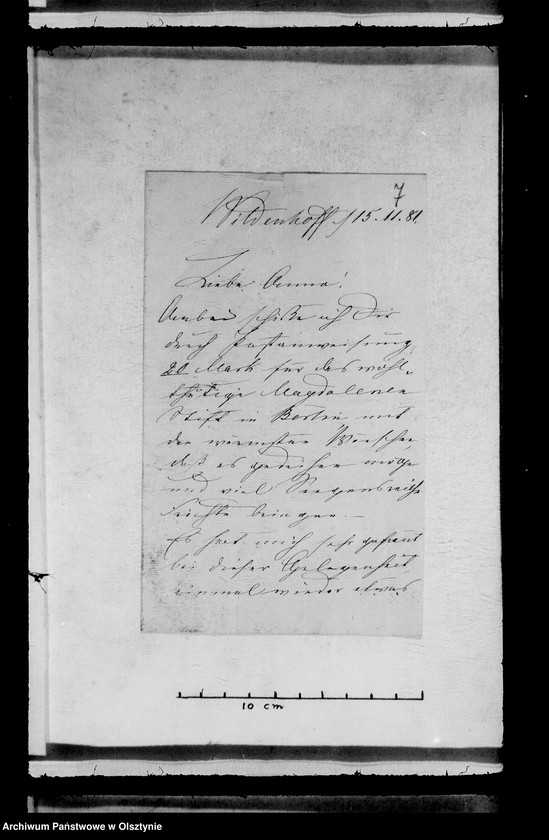 7
Wildenhoff, 15. 11. 81.
Liebe Anna!
Anbei schicke ich Dir
durch Postanweisung
20 Mark für das wohl-
thätige Magdalenen
Stift in Berlin mit
den wärmsten Wünschen
daß es gedeihen möge
und viel Seegensreiche
Früchte bringen. –
Es hat mich sehr gefreut
bei dieser Gelegenheit
einmal wieder etwas
10 cm
Archiwum Państwowe w Olsztynie